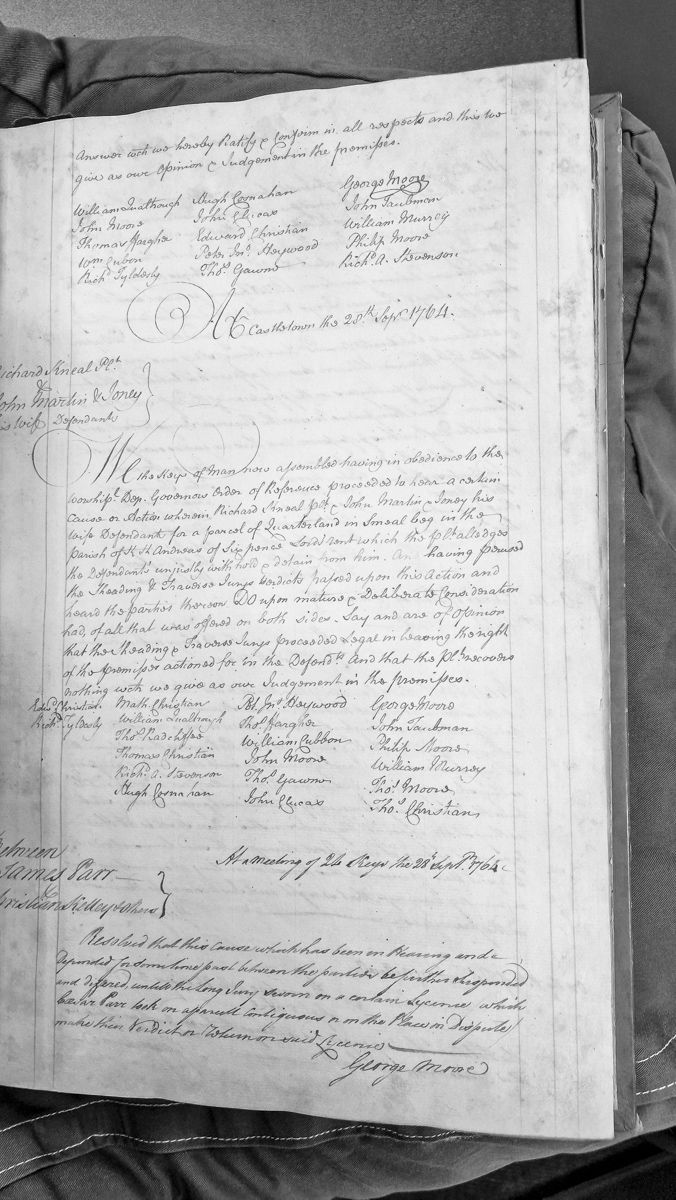 Answer wch we hereby Ratify & Confirm in all respects and this we
give as our Opinion & Judgement in the premises.
William Qualtrough Hugh Cosnahan George Moore
John Moore John Clucas John Taubman
Thomas Hargher Edward Christian William Murrey
Wm Cubon Peter Jno. Heywood Philip Moore
Richd. Tyldesly Thos. Gawne Richd. A. Stevenson
At Castletown the 28th Sepr. 1764.
Richard Kneal Plt.
&
John Martin & Joney
his wife Defendants
We the Keys of Man now assembled having in obedience to the
Worshipl. Dep. Governors Order of Reference proceeded to hear a certain
cause or Action wherein Richard Kneal plt. & John Martin & Joney his
wife Defendant for a parcel of Quarterland in Smeal beg in the
parish of K: St. Andreas of Six pence Lords rent which the Plt. alledges
the Defendants unjustly with hold & detain from him. And having perused
the Sheading & Traverse Jurys Verdicts passed upon this Action and
heard the parties thereon DO upon mature & Deliberate Consideration
had, of all that was offered on both sides. Say and are of Opinion
that the Sheading & Traverse Jurys proceeded Legal in leaving the right
of the premisses actioned for in the Defendts. And that the Plt. recovers
nothing wch we give as our Judgement in the premisses.
Edwd. Christian Math. Christian Pet. Jno. Heywood George Moore
Richd. Tyldesly William Qualtrough Thos. Hargher John Taubman
Thos. Radcliffe William Cubbon Philip Moore
Thomas Christian John Moore William Murrey
Richd. A. Stevenson Thos. Gawne Thos. Moore
Hugh Cosnahan John Clucas Thos. Christian
Between
James Parr
&
Christian Kelley & others
At a meeting of 24 Keys the 28th Sept. 1764
Resolved that this cause which has been in Hearing and
Depended for some time past between the parties be further Suspended
and differed, untill the long Jury sworn on a certain Lycence which
Parr took on a parcell contiguous or on the Place in Dispute
make their Verdict or Return on said Lycence
George Moore